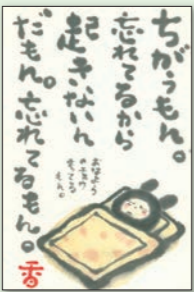 ちがうもん。
忘れてるから
起きないん
だもん。忘れてるもん。
おはよう
香